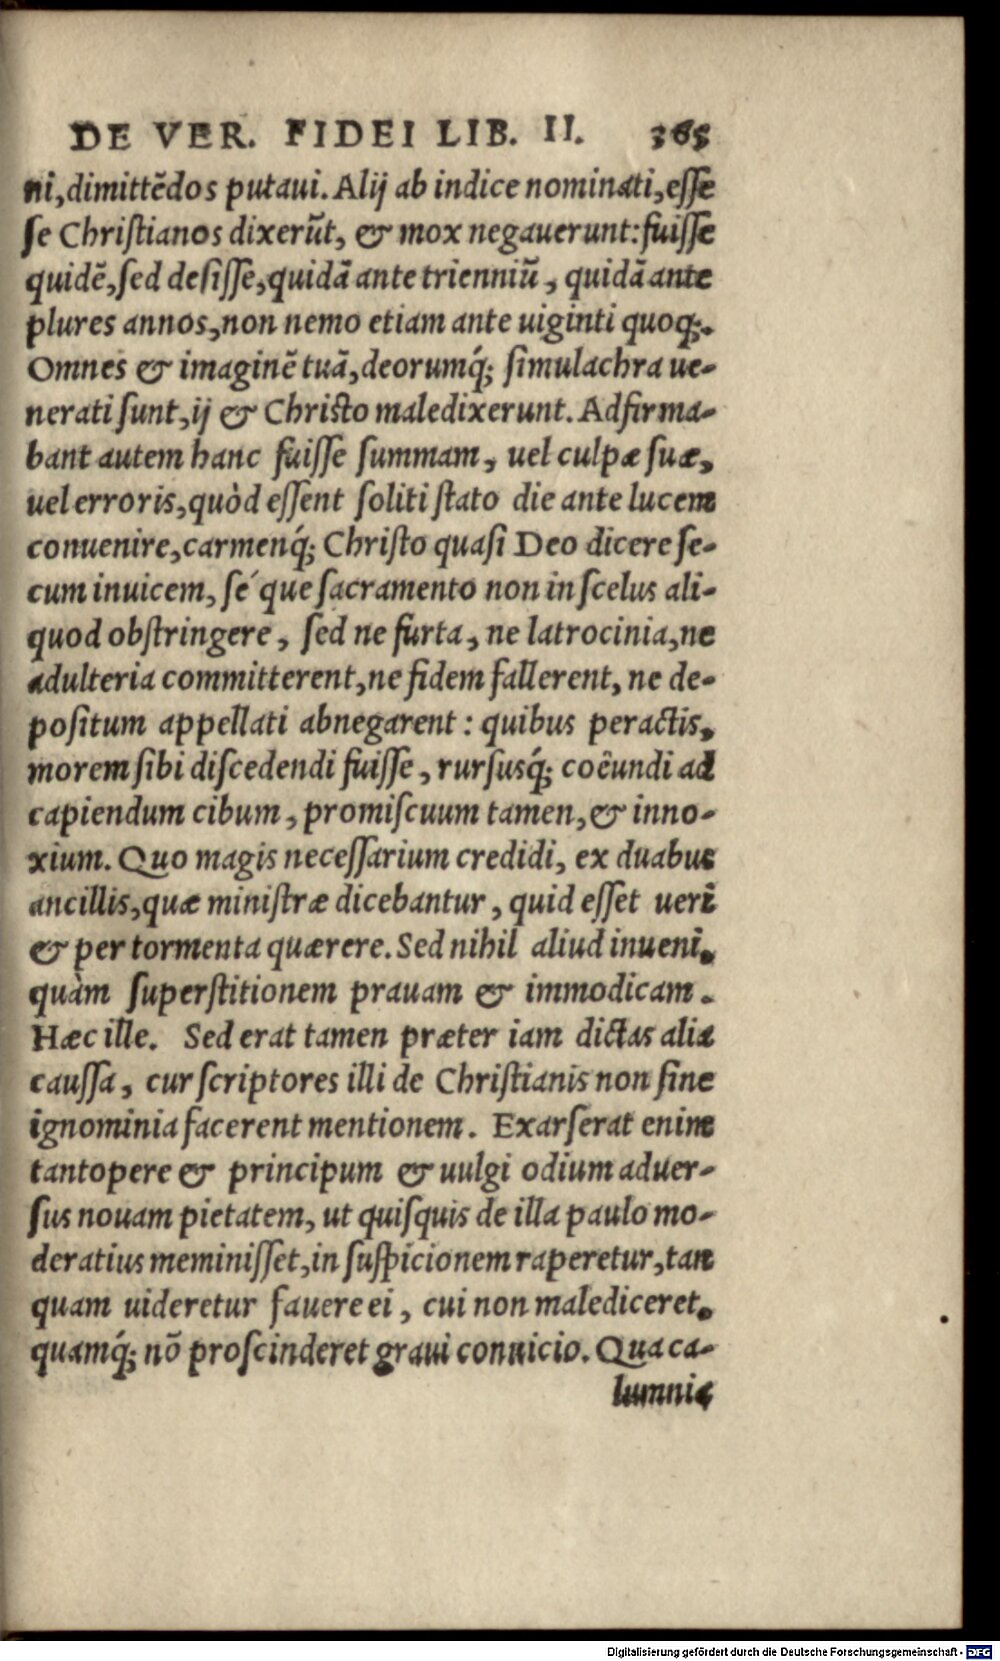 DE VER. FIDEI LIB. II. 365
ni, dimittēdos putaui. Alij ab indice nominati, eſſe
ſe Chriſtianos dixerūt, & mox negauerunt: fuiſſe
quidē, ſed deſiſſe, quidā ante trienniū, quidā ante
plures annos, non nemo etiam ante uiginti quoq;.
Omnes & imaginē tuā, deorumq́; ſimulachra ue-
nerati ſunt, ij & Chriſto maledixerunt. Adfirma-
bant autem hanc fuiſſe ſummam, uel culpæ ſuæ,
uel erroris, quòd eſſent ſoliti ſtato die ante lucem
conuenire, carmenq́; Chriſto quaſi Deo dicere ſe-
cum inuicem, ſé que ſacramento non in ſcelus ali-
quod obſtringere, ſed ne furta, ne latrocinia, ne
adulteria committerent, ne fidem fallerent, ne de-
poſitum appellati abnegarent: quibus peractis,
morem ſibi diſcedendi fuiſſe, rurſusq́; coëundi ad
capiendum cibum, promiſcuum tamen, & inno-
xium. Quo magis neceſſarium credidi, ex duabus
ancillis, quæ miniſtræ dicebantur, quid eſſet ueri
& per tormenta quærere. Sed nihil aliud inueni,
quàm ſuperſtitionem prauam & immodicam.
Hæc ille. Sed erat tamen præter iam dictas alia
cauſſa, cur ſcriptores illi de Chriſtianis non ſine
ignominia facerent mentionem. Exarſerat enim
tantopere & principum & uulgi odium aduer-
ſus nouam pietatem, ut quiſquis de illa paulo mo-
deratius meminiſſet, in ſuſpicionem raperetur, tan
quam uideretur fauere ei, cui non malediceret,
quamq́; nō proſcinderet graui conuicio. Qua ca-
lumnia
Digitalisierung gefördert durch die Deutsche Forschungsgemeinschaft - DFG